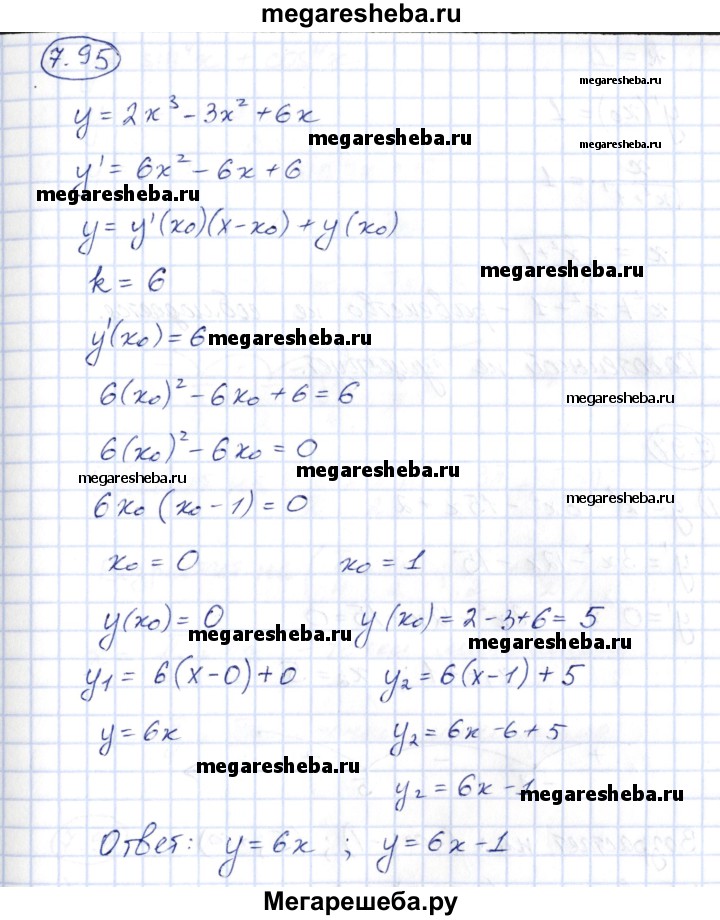 megaresheba.ru
7.95
megaresheba.ru
y = 2x³ - 3x² + 6x
megaresheba.ru
megaresheba.ru
y' = 6x² - 6x + 6
megaresheba.ru
y = y'(x₀)(x-x₀) + y(x₀)
k = 6
megaresheba.ru
y'(x₀) = 6
megaresheba.ru
6(x₀)² - 6x₀ + 6 = 6
megaresheba.ru
6(x₀)² - 6x₀ = 0
megaresheba.ru
megaresheba.ru
6x₀ (x₀ - 1) = 0
megaresheba.ru
x₀ = 0 x₀ = 1
y(x₀) = 0 y(x₀) = 2-3+6 = 5
megaresheba.ru
megaresheba.ru
y₁ = 6(x-0)+0 y₂ = 6(x-1) + 5
y = 6x y₂ = 6x - 6 + 5
megaresheba.ru
y₂ = 6x - 1
megaresheba.ru
Ответ: y = 6x ; y = 6x - 1
Мегарешеба.ру